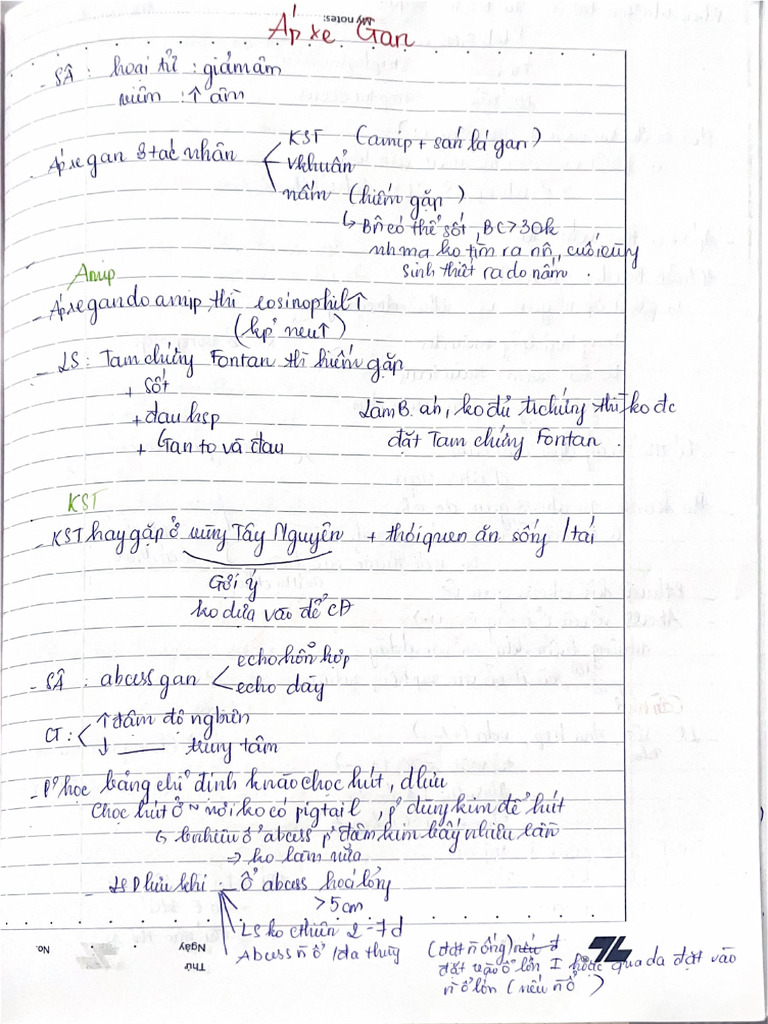 My notes:
Áp xe Gan
- SÂ : hoại tử : giảm âm
viêm : ↑ âm
- Áp xe gan 3 tác nhân
KST (amip + sán lá gan)
Vkhuẩn
nấm (hiếm gặp)
↳ Bn có thể sốt, BC > 30k
nhưng ko tìm ra nn, cuối cùng
sinh thiết ra do nấm.
Amip
- Áp xe gan do amip thì eosinophil ↑
(kp' neu ↑)
- LS : Tam chứng Fontan thì hiếm gặp
+ Sốt
+ đau hsp
+ Gan to và đau
Làm B. án, ko đủ tr chứng thì ko đc
đặt Tam chứng Fontan.
KST
- KST hay gặp ở vùng Tây Nguyên + thói quen ăn sống / tái
Gợi ý
ko dựa vào để CĐ
- SÂ : abcess gan
echo hỗn hợp
echo dày
CT :
↑ đậm độ nghiên
↓ —— trung tâm
- P' học bảng chỉ định knào chọc hút, dlưu
Chọc hút ở ~ nơi ko có pigtail, p' dùng kim để hút
↳ bnhiêu ổ abcess p' đâm kim bấy nhiêu lần
⇒ ko làm nữa
- LS Dlưu khi :
- Ổ abcess hoá lỏng
> 5cm
LS ko cthiện 2 - 7 d
Abcess n ổ / đa thùy
(đặt n ống)
đặt vào ổ lớn I hoặc qua da đặt vào
n ổ lớn (nếu n ổ)
No.
Ngày
Thứ